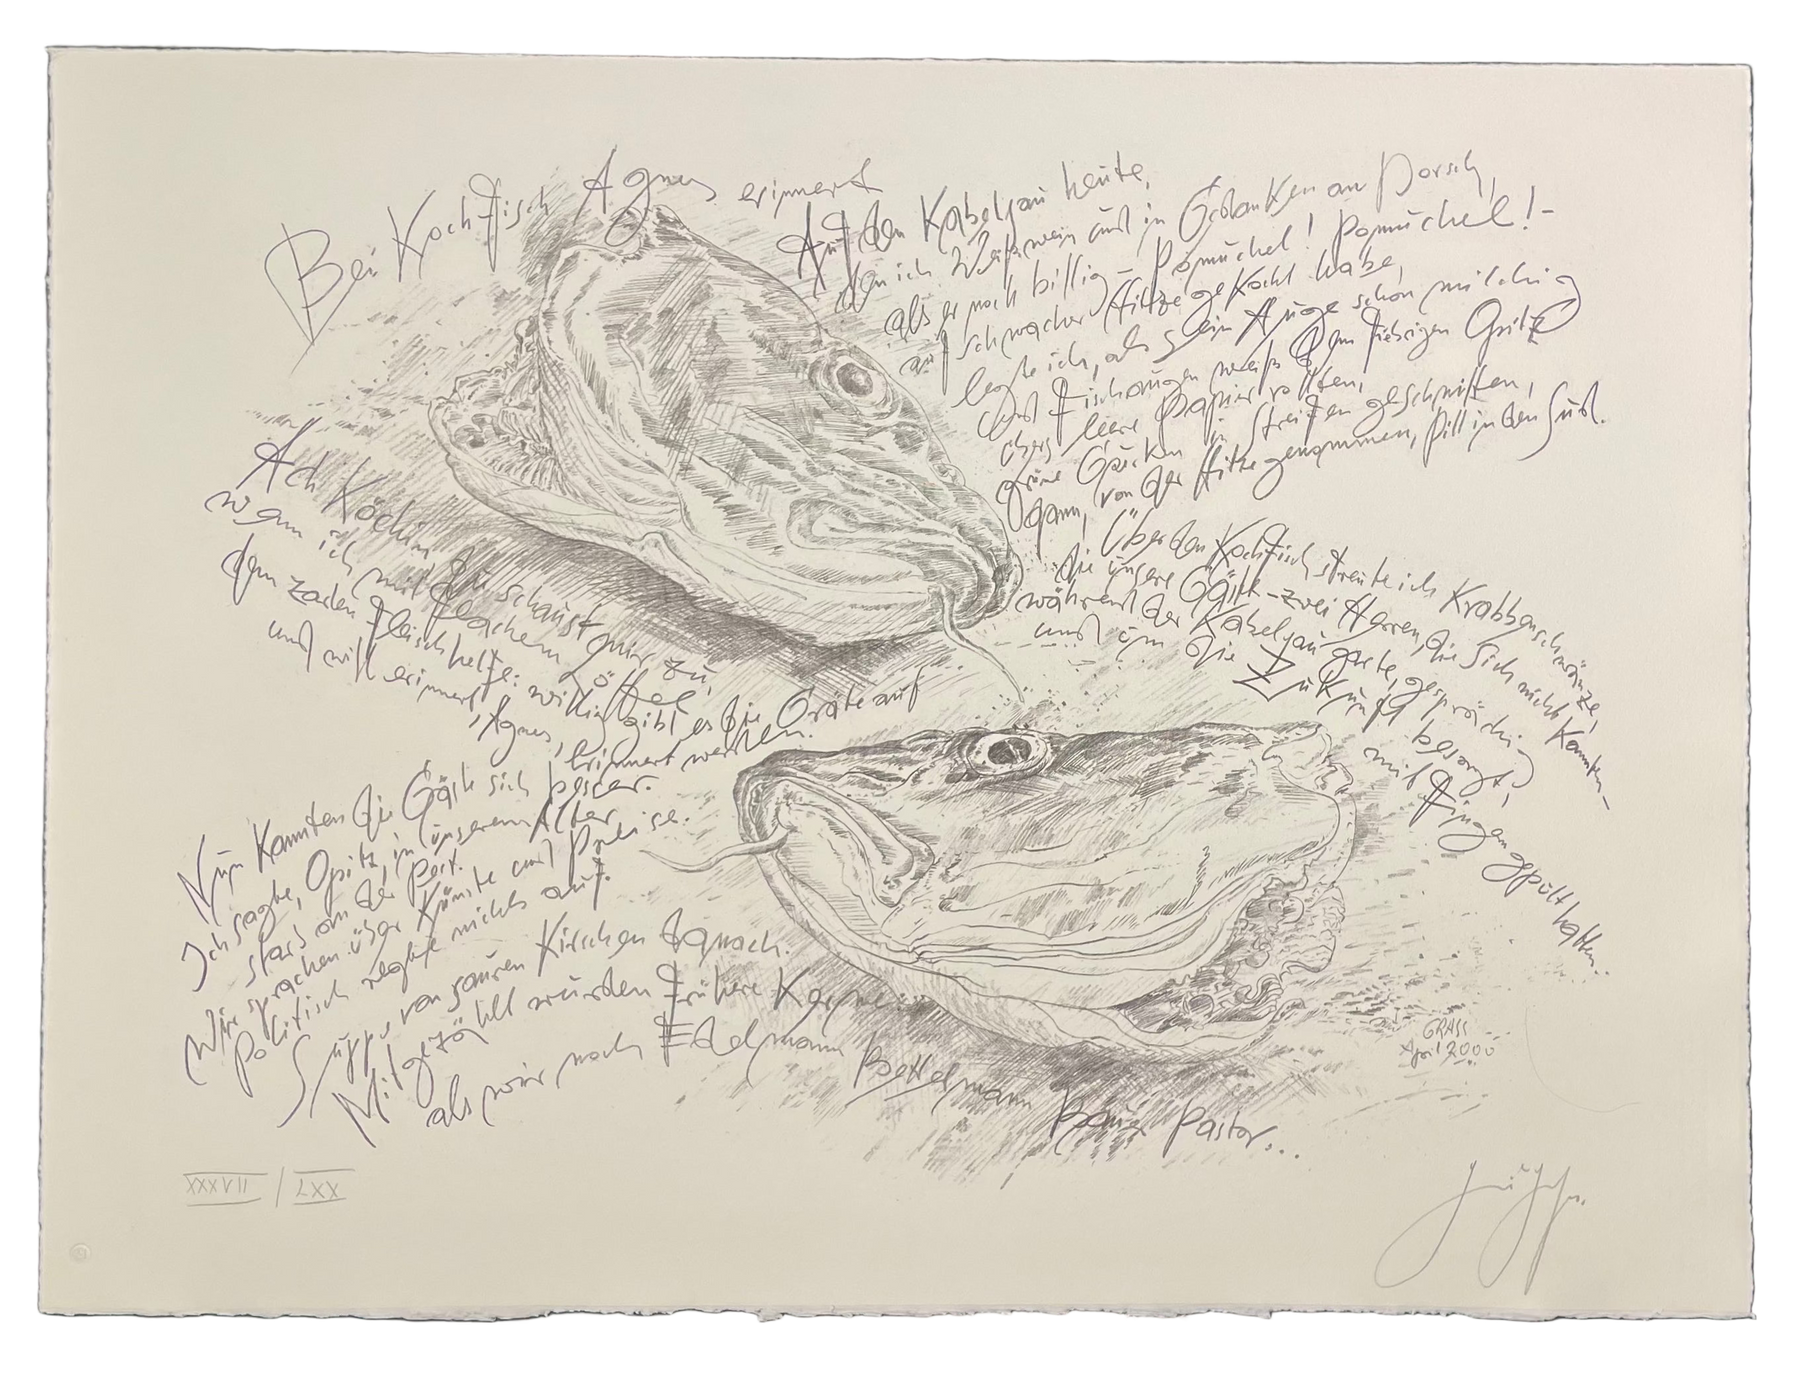 Bei Kochfisch Agnes erinnert
Auf den Kabeljau heute,
den ich Weißwein und in Gedanken an Dorsch,
als er noch billig – Pomuchel! Pomuchel! –
auf schwacher Hitze gekocht habe,
legte ich, als sein Auge schon milchig
und Fischaugen weiß dem fiebrigen Opitz
übers leere Papier rollten,
grüne Gurken in Streifen geschnitten,
dann, von der Hitze genommen, Dill in den Sud.
Über den Kochfisch streute ich Krabbenschwänze,
die unsere Gäste – zwei Herren, die sich nicht kannten –
während der Kabeljau garte, gesprächig
und um die Zukunft besorgt,
mit Fingern gepult hatten.
Ach Köchin du schaust mir zu,
wenn ich mit flachem Löffel
dem zarten Fleisch helfe: willig gibt es die Gräte auf
und will erinnert, Agnes, erinnert werden.
Nun kannten die Gäste sich besser.
Ich sagte, Opitz, in unserem Alter
starb an der Pest.
Wir sprachen über Künste und Preise.
Politisch regte nichts auf.
Suppe von sauren Kirschen danach.
Mitgezählt wurden frühere Kerne:
als wir noch Edelmann Bettelmann Bauer Pastor...
GRASS
April 2000
XXXVII / LXX